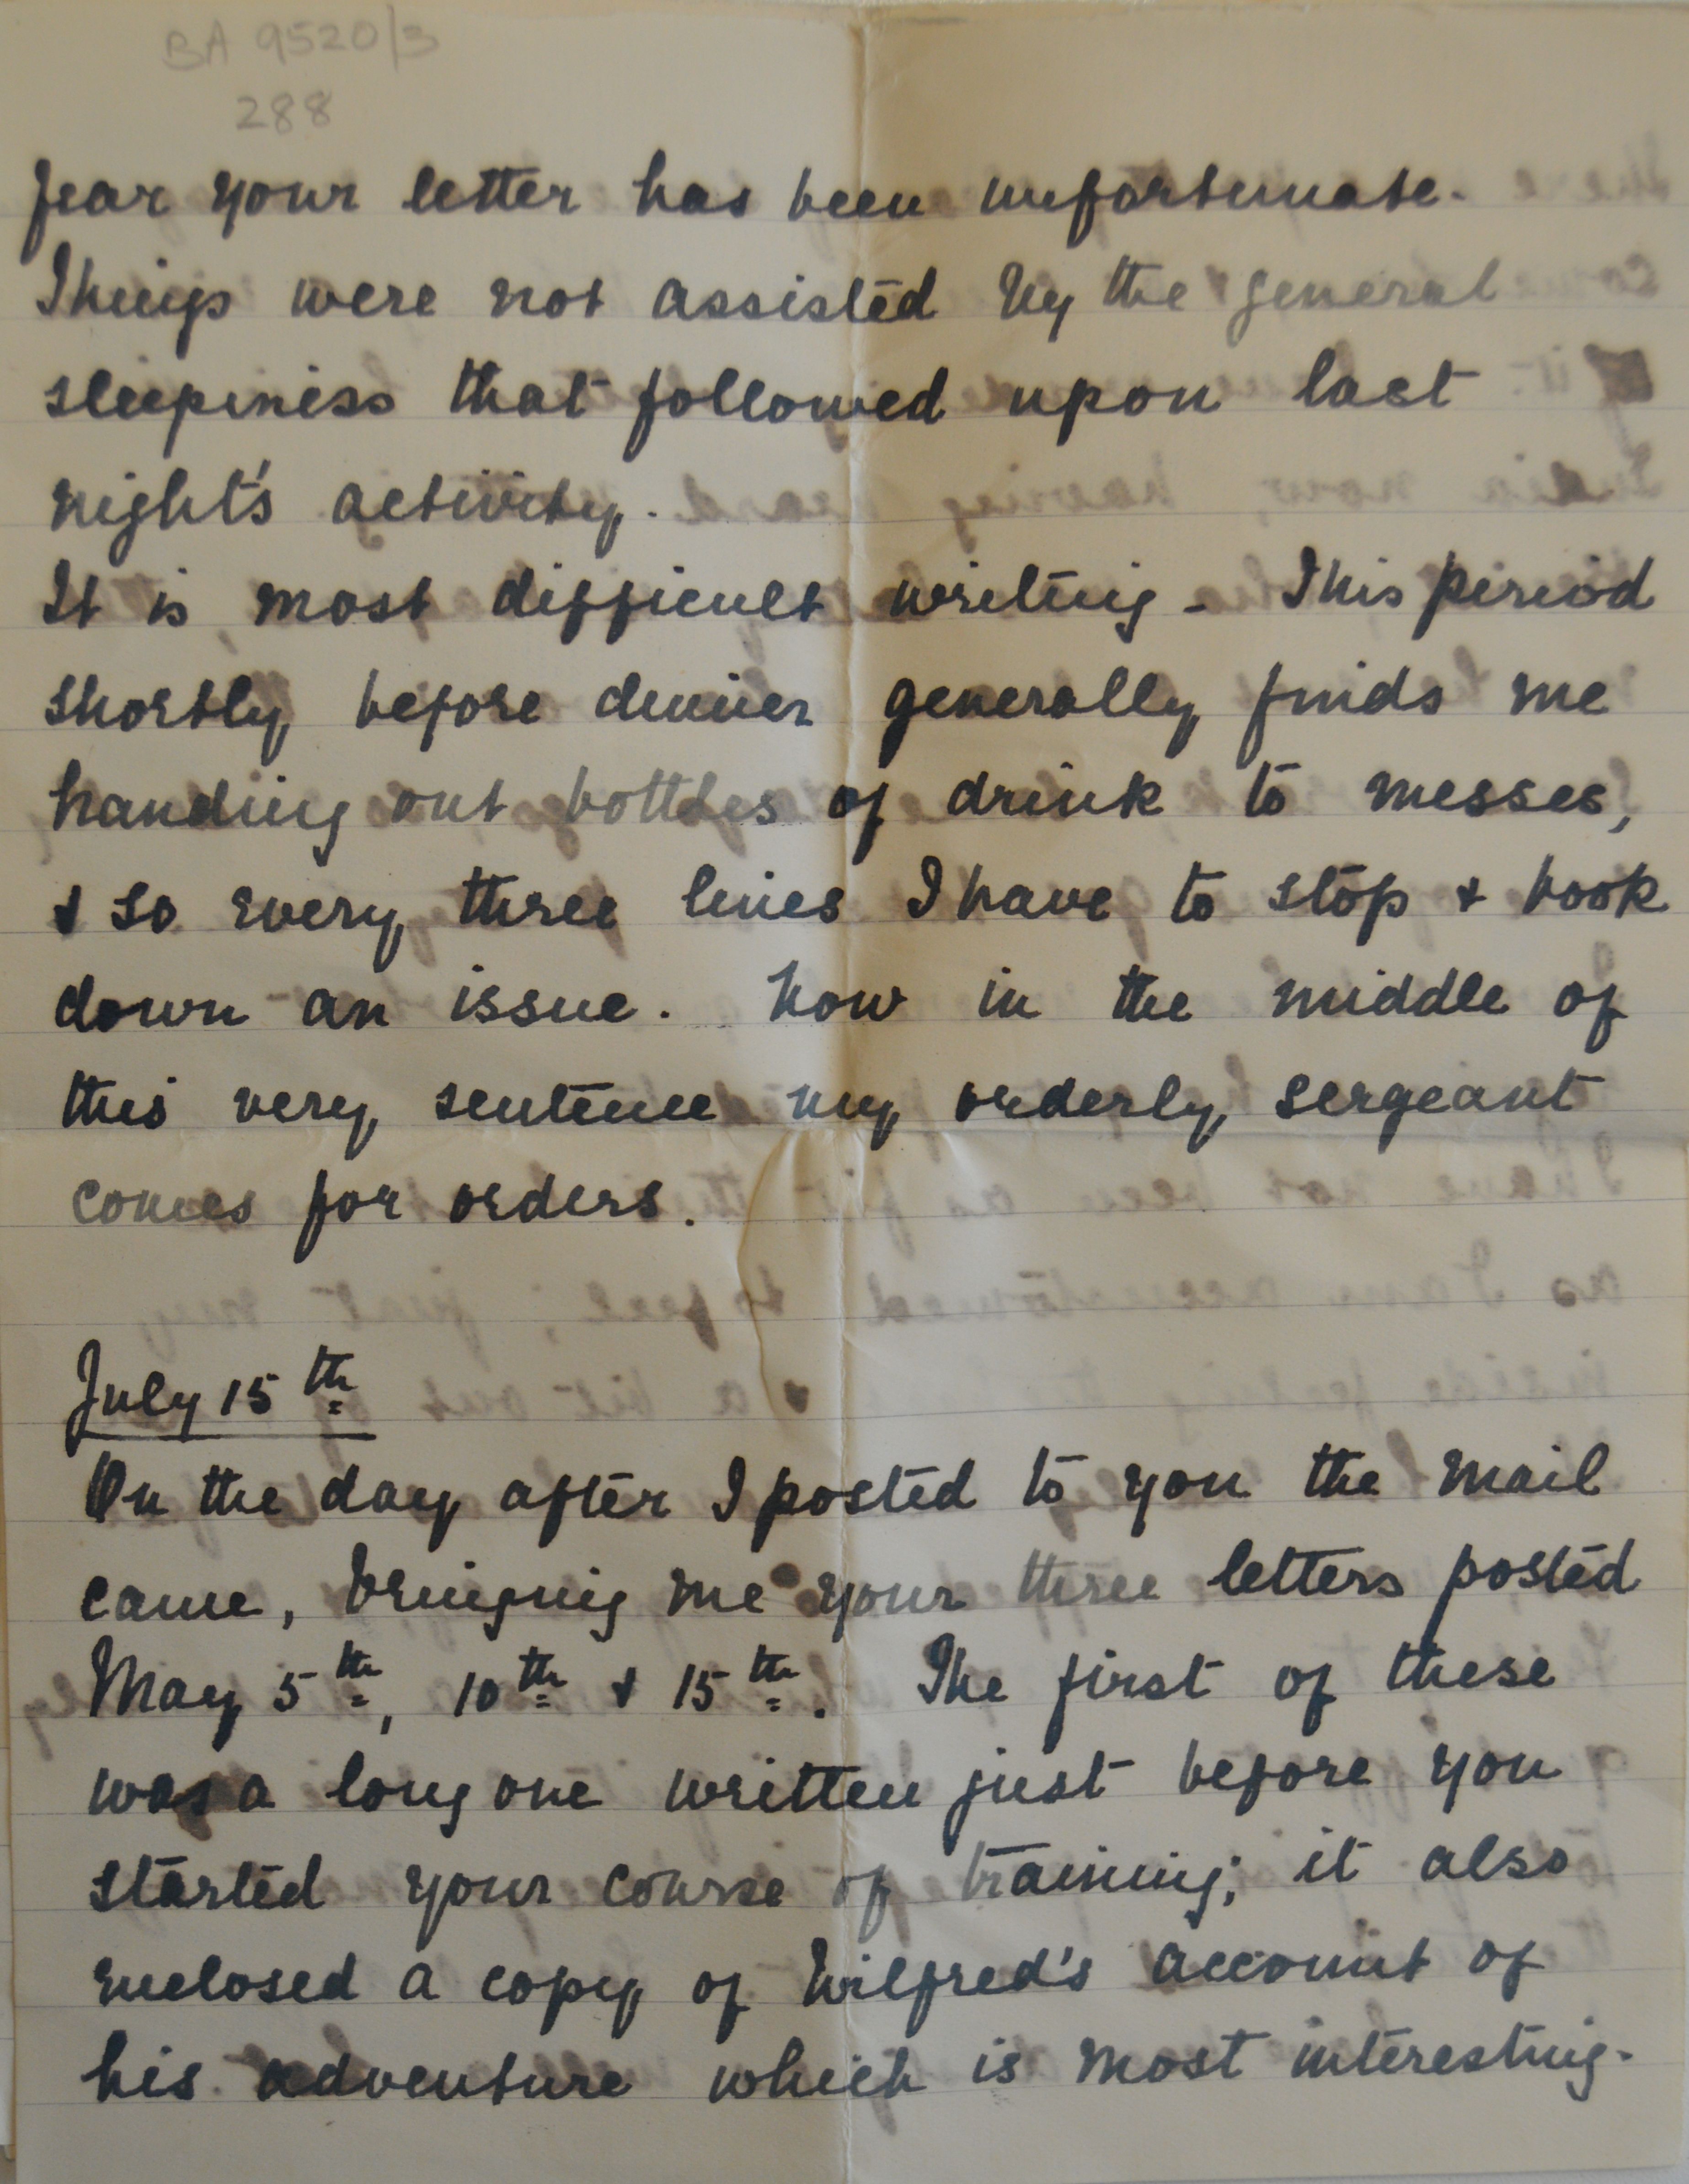 BA 9520/3
288
fear your letter has been unfortunate.
Things were not assisted by the general
sleepiness that followed upon last
night's activity.
It is most difficult writing - This period
shortly before dinner generally finds me
handing out bottles of drink to messes,
& so every three lines I have to stop & book
down an issue. Now in the middle of
this very sentence my orderly sergeant
comes for orders.
July 15th
On the day after I posted to you the mail
came, bringing me your three letters posted
May 5th, 10th & 15th. The first of these
was a long one written just before you
started your course of training; it also
enclosed a copy of Wilfred's account of
his adventure which is most interesting.